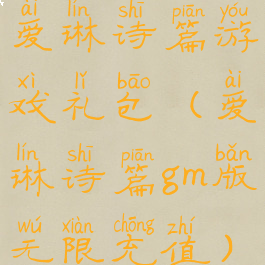 ài lín shī piān yóu
爱琳诗篇游
xì lǐ bāo ài
戏礼包（爱
lín shī piān bǎn
琳诗篇gm版
wú xiàn chōng zhí
无限充值）